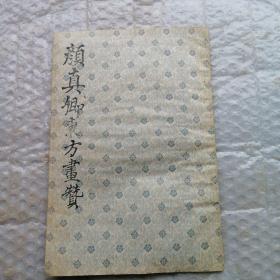 顔真卿東方畫贊